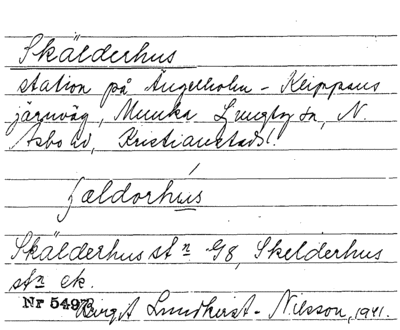 Skälderhus
station på Ängelholm - Klippans
järnväg, Munka Ljungby sn, N.
Åsbo hd, Kristianstads l.
Skälderhus st n G8, Skelderhus
stn ek.
Nr 5497
Birgit Lundkvist - Nilsson, 1941.